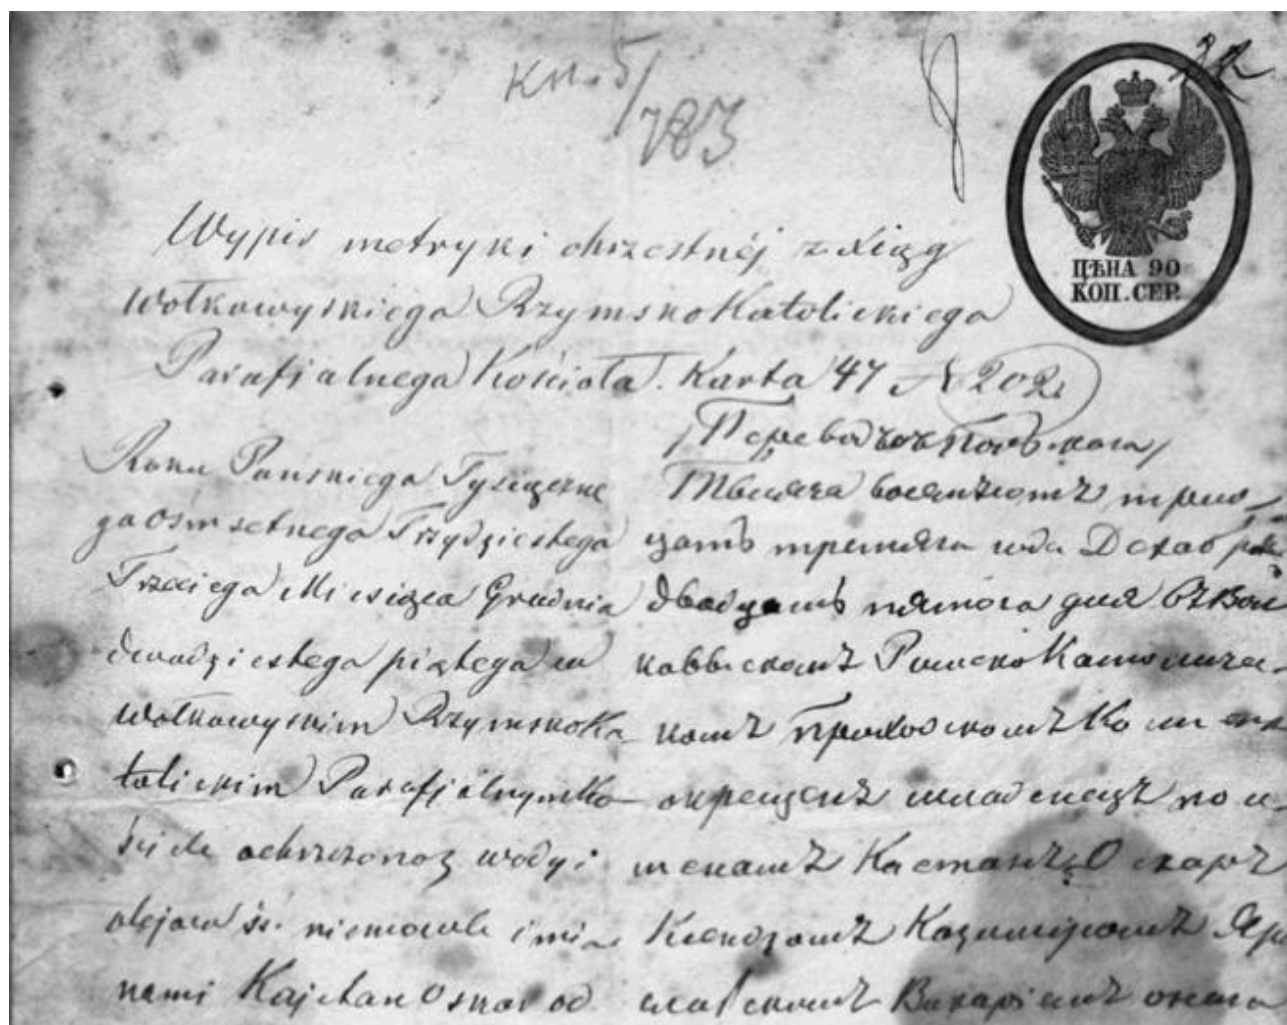 Кн. 5/783
32
ЦѢНА 90
КОП. СЕР.
Wypis metryki chrzestnéj z Xiąg
Wołkowyskiego Rzymsko Katolickiego
Parafjalnego Kościoła. Karta 47 N 202
Roku Pańskiego Tysiączne
go Ośm setnego Trzydziestego
Trzeciego Miesiąca Grudnia
dwudziestego piątego w
Wołkowyskim Rzymsko Ka
tolickim Parafjalnym Ko
ściele ochrzczono z wody i
olejów śś. niemowle imio
nami Kajetan Oskar od
/Переводъ съ Польскаго/
Тысяча восемьсотъ трид
цать третьяго года Декабря
двадцать пятого дня въ Вол
ковыскомъ Римско Католичес
комъ Приходскомъ Костелѣ
окрещенъ младенецъ по и
менамъ Каетанъ Оскаръ
Ксендзомъ Казимиромъ Яро
славскомъ Викаріемъ онаго